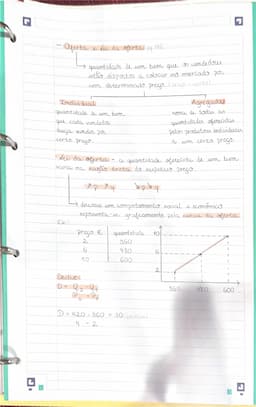 - Oferta e lei da oferta
↳ quantidade de um bem que os vendedores
estão dispostos a colocar no mercado por
um determinado preço
Individual
quantidade de um bem
que cada vendedor
deseja vender por
certo preço.
Agregada
soma de todas as
quantidades oferecidas
pelos produtores individuais
a um certo preço.
Lei da oferta - a quantidade oferecida de um bem
varia na razão direta do respetivo preço
↳ descreve um comportamento racional e económico
representa-se graficamente pela curva da oferta.
Ex:
preço € quantidade
2 360
4 420
10 600
10
4
2
360 420 600
Declive:
D = 420 - 360 = 30
4 - 2